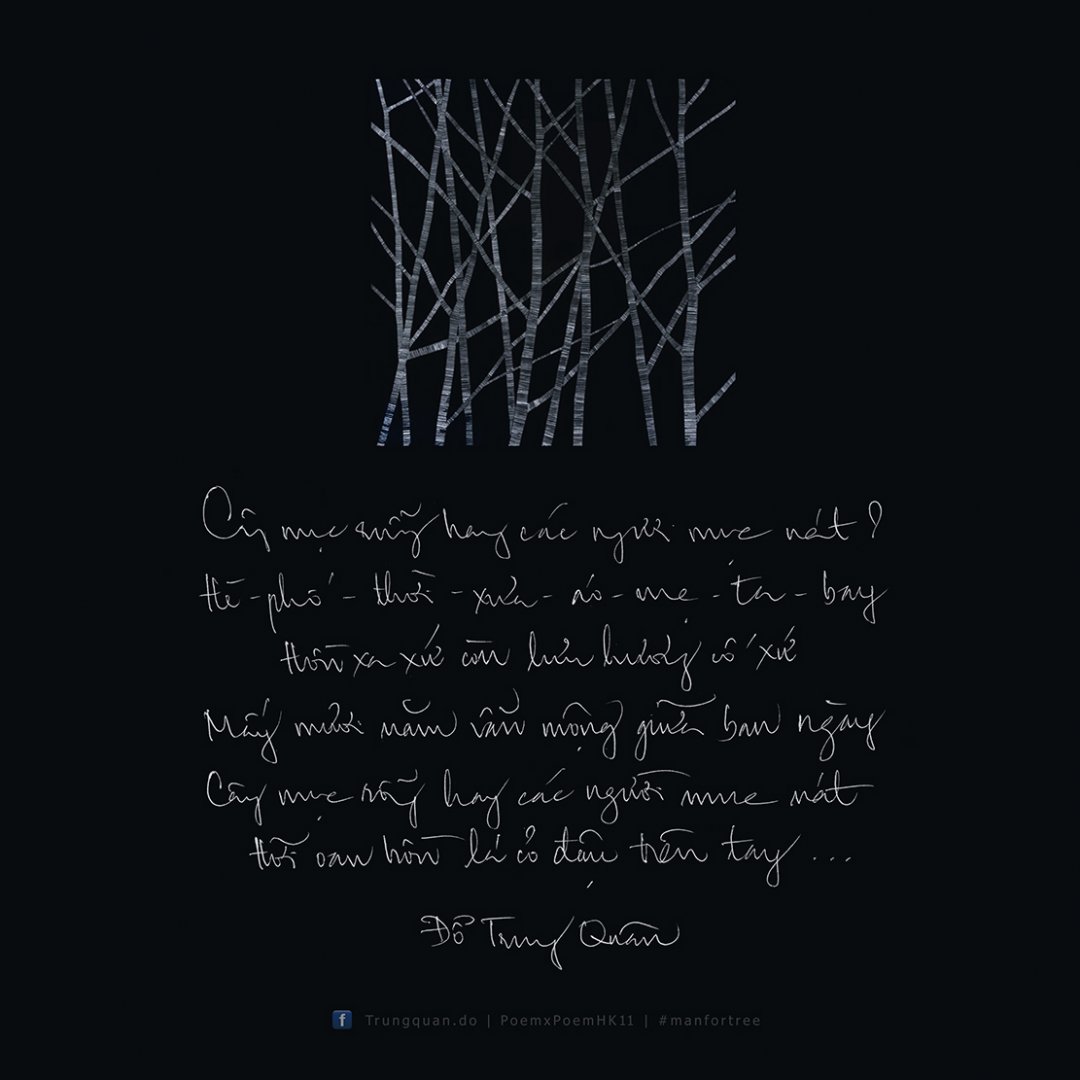 Cây mục ruỗng hay các người mục nát?
Hè - phố - thời - xưa - áo - mẹ - ta - bay
Hồn xa xứ còn lưu hương cố xứ
Mấy mươi năm vẫn mộng giữa ban ngày
Cây mục ruỗng hay các người mục nát
Hỡi oan hồn lá cỏ đậu trên tay ...
Đỗ Trung Quân
f Trungquan.do | PoemxPoemHK11 | #manfortree